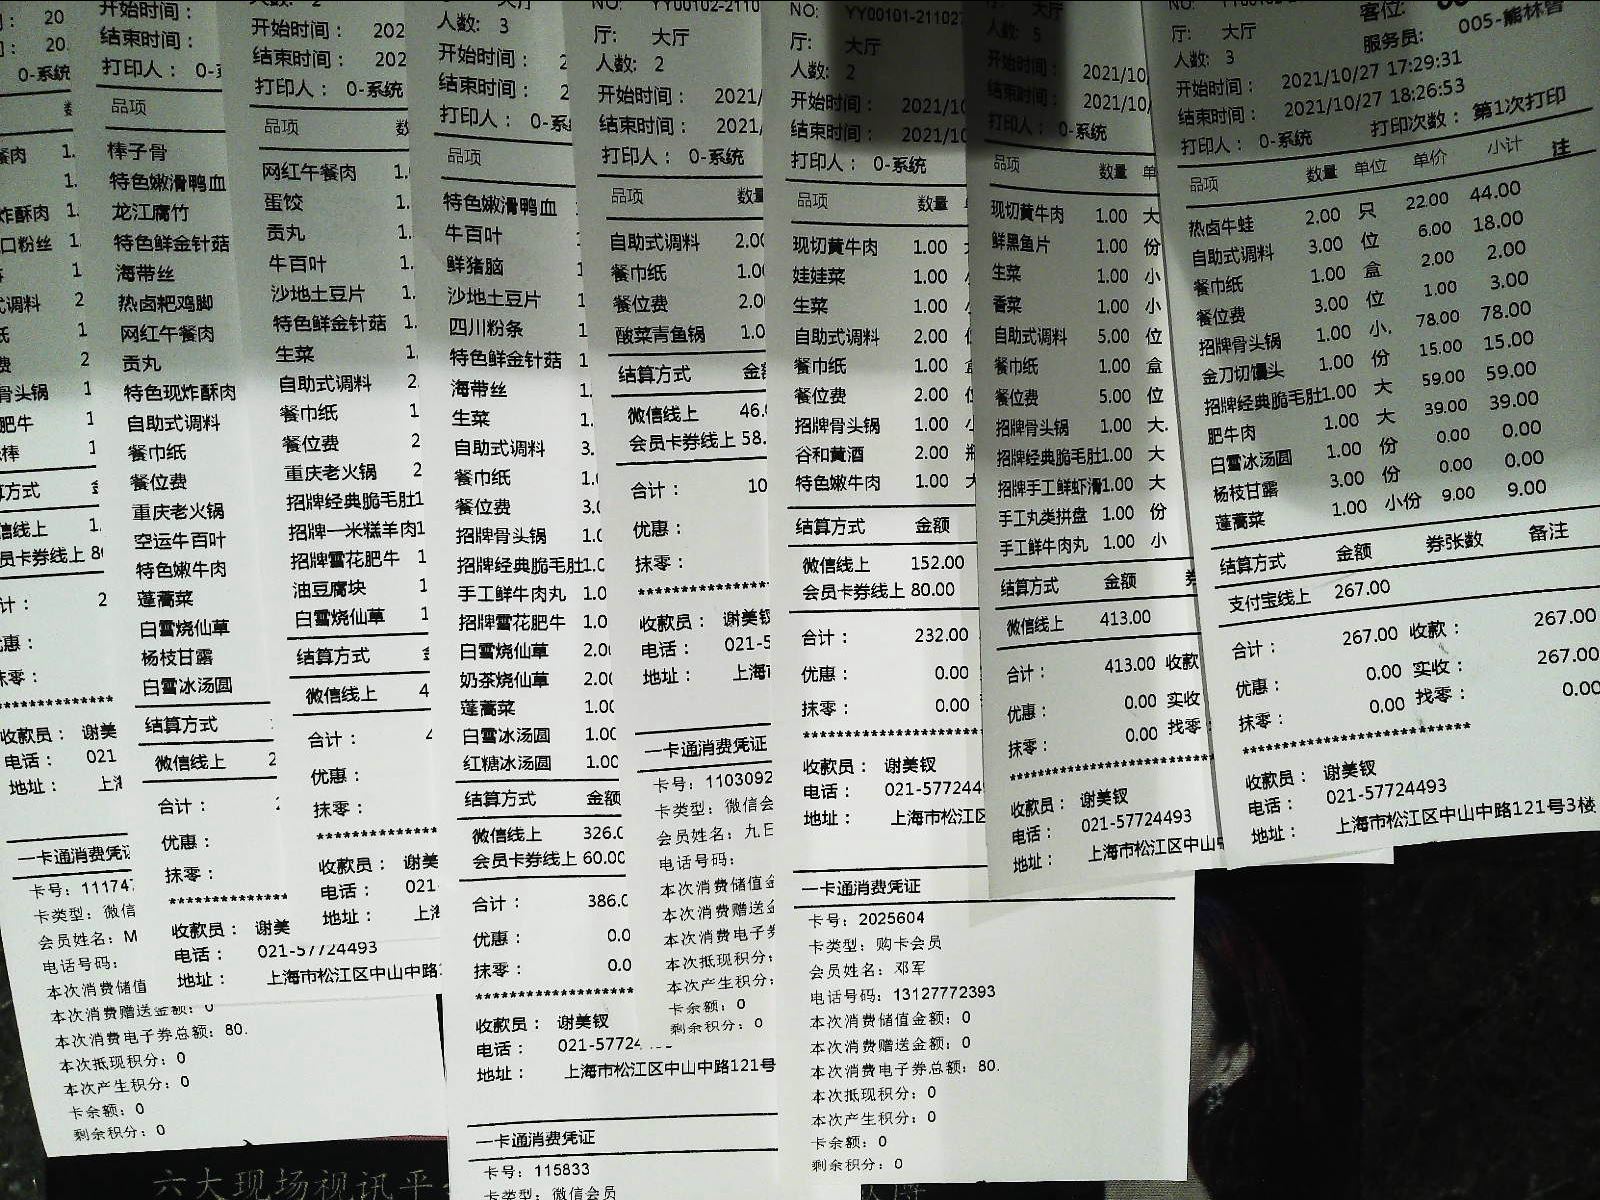 20.
20.
0-系统
餐肉 1.
1.
炸酥肉 1.
口粉丝 1
1
式调料 2
纸 1
费 2
骨头锅 1
肥牛 1
棒 1
方式
信线上 1.
员卡券线上 80
计： 2
优惠：
抹零：
******************
收款员： 谢美
电话： 021
地址： 上海
一卡通消费凭证
卡号：11174
卡类型：微信
会员姓名：M
电话号码：
本次消费储值
本次消费赠送金额：0
本次消费电子券总额：80.
本次抵现积分：0
本次产生积分：0
卡余额：0
剩余积分：0
开始时间：
结束时间：
打印人： 0-
品项
棒子骨
特色嫩滑鸭血
龙江腐竹
特色鲜金针菇
海带丝
热卤粑鸡脚
网红午餐肉
贡丸
特色现炸酥肉
自助式调料
餐巾纸
餐位费
重庆老火锅
空运牛百叶
特色嫩牛肉
蓬蒿菜
白雪烧仙草
杨枝甘露
白雪冰汤圆
结算方式
微信线上 2
合计： 2
优惠：
抹零：
******************
收款员： 谢美
电话： 021-57724493
地址： 上海市松江区中山中路
人数： 2
开始时间： 202
结束时间： 202
打印人： 0-系统
品项 数
网红午餐肉 1.
蛋饺 1.
贡丸 1.
牛百叶 1.
沙地土豆片 1.
特色鲜金针菇 1.
生菜 1.
自助式调料 2.
餐巾纸 1
餐位费 2
重庆老火锅 2
招牌经典脆毛肚1
招牌一米糕羊肉1
招牌雪花肥牛 1
油豆腐块 1
白雪烧仙草 1
结算方式
微信线上 4
合计： 4
优惠：
抹零：
******************
收款员： 谢美
电话： 021-
地址： 上海
人数： 3
开始时间： 2
结束时间： 2
打印人： 0-系
品项
特色嫩滑鸭血
牛百叶 1
鲜猪脑 1
沙地土豆片 1
四川粉条 1
特色鲜金针菇 1
海带丝 1.
生菜 1.
自助式调料 3.
餐巾纸 1.
餐位费 3.0
招牌骨头锅 1.
招牌经典脆毛肚1.0
手工鲜牛肉丸 1.0
招牌雪花肥牛 1.0
白雪烧仙草 2.00
奶茶烧仙草 2.00
蓬蒿菜 1.00
白雪冰汤圆 1.00
红糖冰汤圆 1.00
结算方式 金额
微信线上 326.0
会员卡券线上 60.00
合计： 386.0
优惠： 0.0
抹零： 0.0
******************
收款员： 谢美钗
电话： 021-5772
地址： 上海市松江区中山中路121号
一卡通消费凭证
卡号：115833
卡类型：微信会员
NO: YY00102-2110
厅： 大厅
人数： 2
开始时间： 2021/
结束时间： 2021/
打印人： 0-系统
品项 数量
自助式调料 2.00
餐巾纸 1.00
餐位费 2.0
酸菜青鱼锅 1.0
结算方式 金额
微信线上 46.
会员卡券线上 58.
合计： 10
优惠：
抹零：
******************
收款员： 谢美钗
电话： 021-5
地址： 上海市
一卡通消费凭证
卡号：1103092
卡类型：微信会
会员姓名：九日
电话号码：
本次消费储值金
本次消费赠送金
本次消费电子券
本次抵现积分：
本次产生积分：
卡余额：0
剩余积分：0
NO: YY00101-211027
厅： 大厅
人数： 2
开始时间： 2021/10
结束时间： 2021/10
打印人： 0-系统
品项 数量
现切黄牛肉 1.00
娃娃菜 1.00
生菜 1.00
自助式调料 2.00
餐巾纸 1.00
餐位费 2.00
招牌骨头锅 1.00
谷和黄酒 2.00
特色嫩牛肉 1.00
结算方式 金额
微信线上 152.00
会员卡券线上 80.00
合计： 232.00
优惠： 0.00
抹零： 0.00
******************
收款员： 谢美钗
电话： 021-577244
地址： 上海市松江区
一卡通消费凭证
卡号：2025604
卡类型：购卡会员
会员姓名：邓军
电话号码：13127772393
本次消费储值金额：0
本次消费赠送金额：0
本次消费电子券总额：80.
本次抵现积分：0
本次产生积分：0
卡余额：0
剩余积分：0
厅： 大厅
人数： 5
开始时间： 2021/10
结束时间： 2021/10/
打印人： 0-系统
品项 数量 单
现切黄牛肉 1.00 大
鲜黑鱼片 1.00 份
生菜 1.00 小
香菜 1.00 小
自助式调料 5.00 位
餐巾纸 1.00 盒
餐位费 5.00 位
招牌骨头锅 1.00 大.
招牌经典脆毛肚1.00 大
招牌手工鲜虾滑1.00 大
手工丸类拼盘 1.00 份
手工鲜牛肉丸 1.00 小
结算方式 金额 券
微信线上 413.00
合计： 413.00 收款
优惠： 0.00 实收
抹零： 0.00 找零
******************
收款员： 谢美钗
电话： 021-57724493
地址： 上海市松江区中山中
客位:
厅： 大厅 服务员: 005-熊林香
人数: 3
开始时间： 2021/10/27 17:29:31
结束时间： 2021/10/27 18:26:53
打印人： 0-系统 打印次数： 第1次打印
品项 数量 单位 单价 小计 注
热卤牛蛙 2.00 只 22.00 44.00
自助式调料 3.00 位 6.00 18.00
餐巾纸 1.00 盒 2.00 2.00
餐位费 3.00 位 1.00 3.00
招牌骨头锅 1.00 小. 78.00 78.00
金刀切馒头 1.00 份 15.00 15.00
招牌经典脆毛肚1.00 大 59.00 59.00
肥牛肉 1.00 大 39.00 39.00
白雪冰汤圆 1.00 份 0.00 0.00
杨枝甘露 3.00 份 0.00 0.00
蓬蒿菜 1.00 小份 9.00 9.00
结算方式 金额 券张数 备注
支付宝线上 267.00
合计： 267.00 收款： 267.00
优惠： 0.00 实收： 267.00
抹零： 0.00 找零： 0.00
******************
收款员： 谢美钗
电话： 021-57724493
地址： 上海市松江区中山中路121号3楼
六大现场视讯平